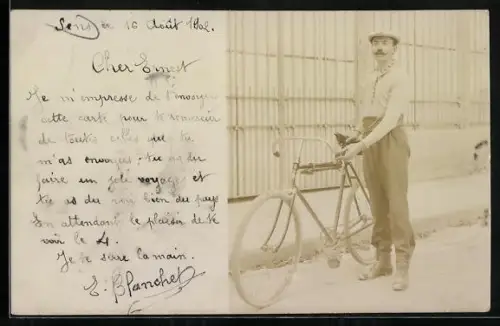 Sens le 16 Août 1902.
Cher Ernest
Je m'empresse de t'envoyer
cette carte pour te remercier
de toutes celles que tu
m'as envoyés; tu as du
faire un joli voyage et
tu as du voir bien du pays
En attendant le plaisir de te
voir le 4.
Je te serre la main.
E. Blanchet